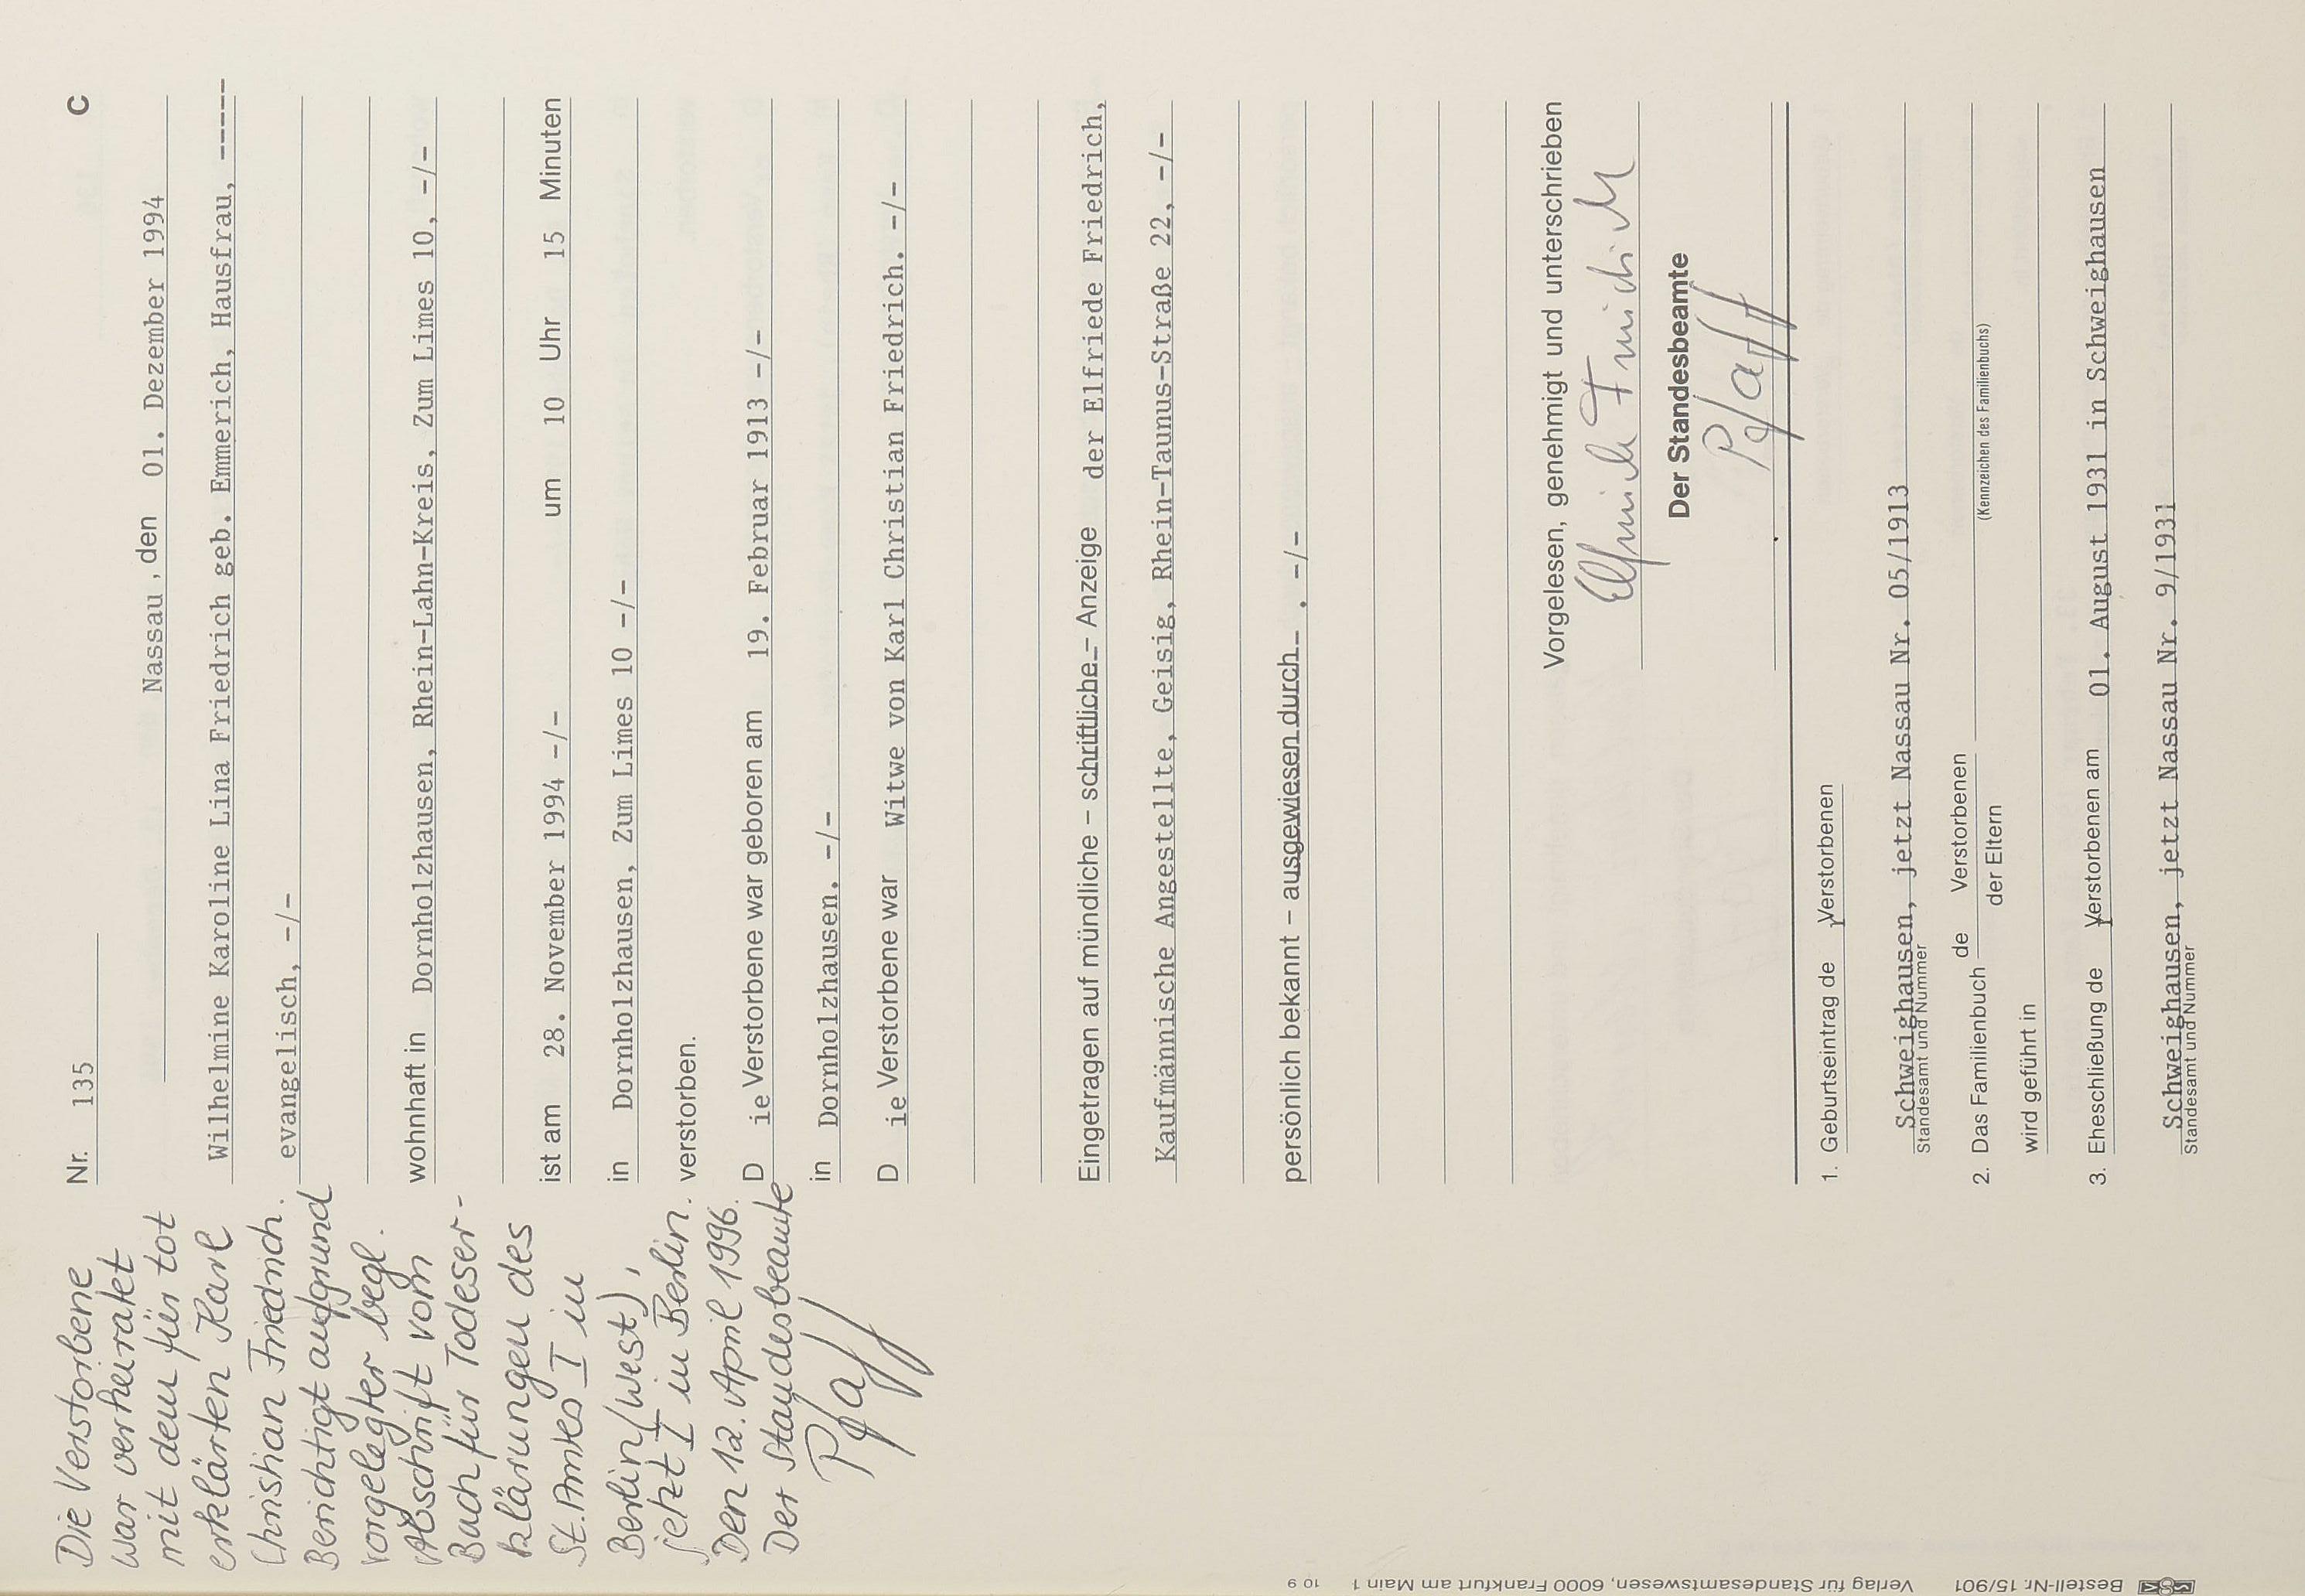 Nr. 135 C
Nassau, den 01. Dezember 1994
Wilhelmine Karoline Lina Friedrich geb. Emmerich, Hausfrau, -----
evangelisch, -/-
wohnhaft in Dornholzhausen, Rhein-Lahn-Kreis, Zum Limes 10, -/-
ist am 28. November 1994 -/- um 10 Uhr 15 Minuten
in Dornholzhausen, Zum Limes 10 -/-
verstorben.
D ie Verstorbene war geboren am 19. Februar 1913 -/-
in Dornholzhausen. -/-
D ie Verstorbene war Witwe von Karl Christian Friedrich. -/-
Eingetragen auf mündliche – schriftliche – Anzeige der Elfriede Friedrich,
Kaufmännische Angestellte, Geisig, Rhein-Taunus-Straße 22, -/-
persönlich bekannt – ausgewiesen durch . -/-
Vorgelesen, genehmigt und unterschrieben
Elfriede Friedrich
Der Standesbeamte
Pfaff
1. Geburtseintrag de r Verstorbenen
Schweighausen, jetzt Nassau Nr. 05/1913
Standesamt und Nummer
2. Das Familienbuch de Verstorbenen
der Eltern
(Kennzeichen des Familienbuchs)
wird geführt in
3. Eheschließung de r Verstorbenen am 01. August 1931 in Schweighausen
Schweighausen, jetzt Nassau Nr. 9/1931
Standesamt und Nummer
Die Verstorbene
war verheiratet
mit dem für tot
erklärten Karl
Christian Friedrich.
Berichtigt aufgrund
vorgelegter begl.
Abschrift vom
Buch für Todeser-
klärungen des
St. Amtes I in
Berlin (West),
jetzt I in Berlin.
Den 12. April 1996.
Der Standesbeamte
Pfaff
Bestell-Nr. 15/901 Verlag für Standesamtswesen, 6000 Frankfurt am Main 1 10 9